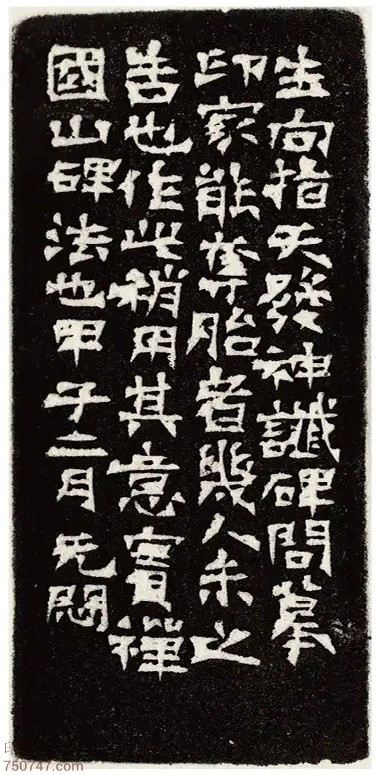 生向指天發神讖碑問摹
印家能奪胎者幾人未之
告也作此稍用其意實禪
國山碑法也甲子二月无悶
750747.com